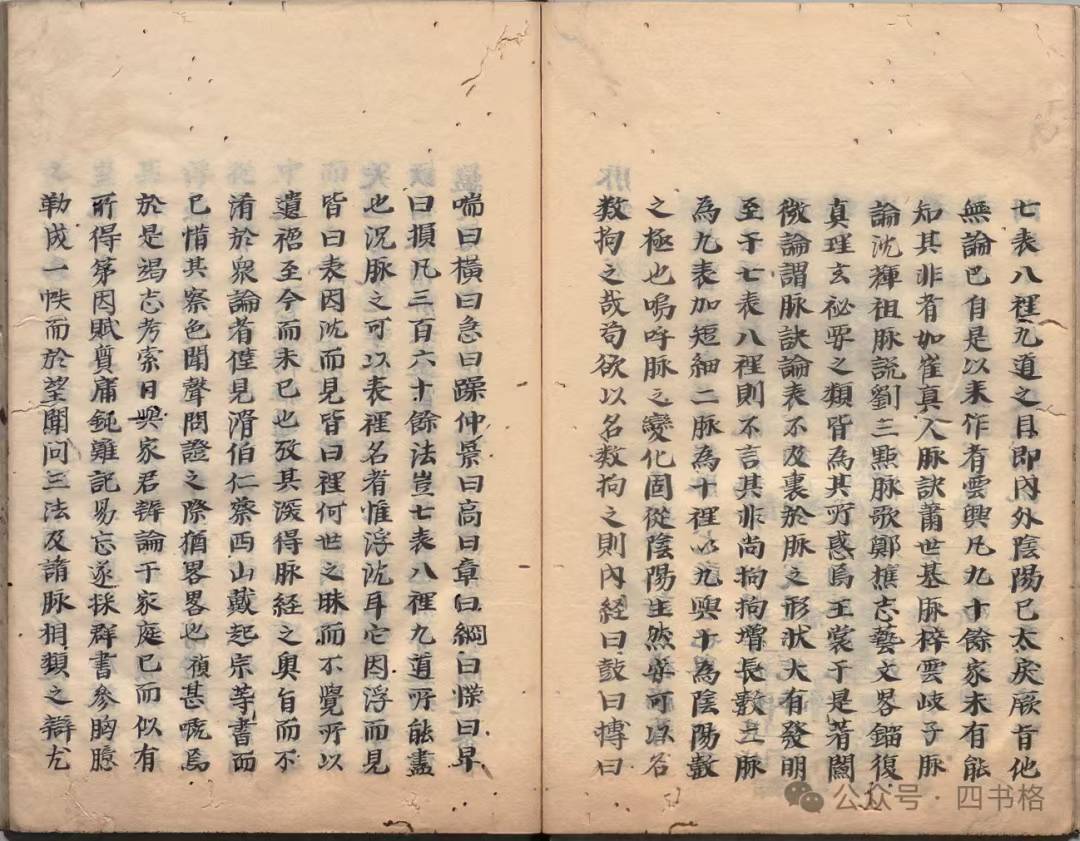 七表八裡九道之目即内外陰陽已太戾厥旨他
無論已自是以来作者雲興凡九十餘家未有能
知其非者如崔真人脉訣蕭世基脉粹雲岐子脉
論沈輝祖脉説劉三點脉歌鄭樵志藝文畧鎦復
真理玄祕要之類皆為其所惑焉王裳于是著闡
微論謂脉訣論表不及裏於脉之形状大有發明
至于七表八裡則不言其非尚拘拘增長數且脉
為九表加短細二脉為十裡以九與十為陰陽數
之極也嗚呼脉之變化固從陰陽生然寧可以名
数拘之哉苟欲以名数拘之則内経曰鼓曰摶曰
喘曰橫曰急曰躁仲景曰高曰章曰綱曰惵曰卑
曰損凡三百六十餘法豈七表八裡九道所能盡
也況脉之可以表裡名者惟浮沈耳它因浮而見
皆曰表因沈而見皆曰裡何世之昧而不覺所以
遺禍至今而未已也攷其深得脉経之奥旨而不
淆於衆論者僅見滑伯仁蔡西山戴起宗等書而
已惜其察色聞聲問證之際猶畧畧也禎甚嘅焉
於是竭志考索日與家君辩論于家庭已而似有
所得第因賦質庸鈍難記易忘遂採群書參胸臆
勒成一帙而於望聞問三法及諸脉相類之辯尤
公众号·四书格